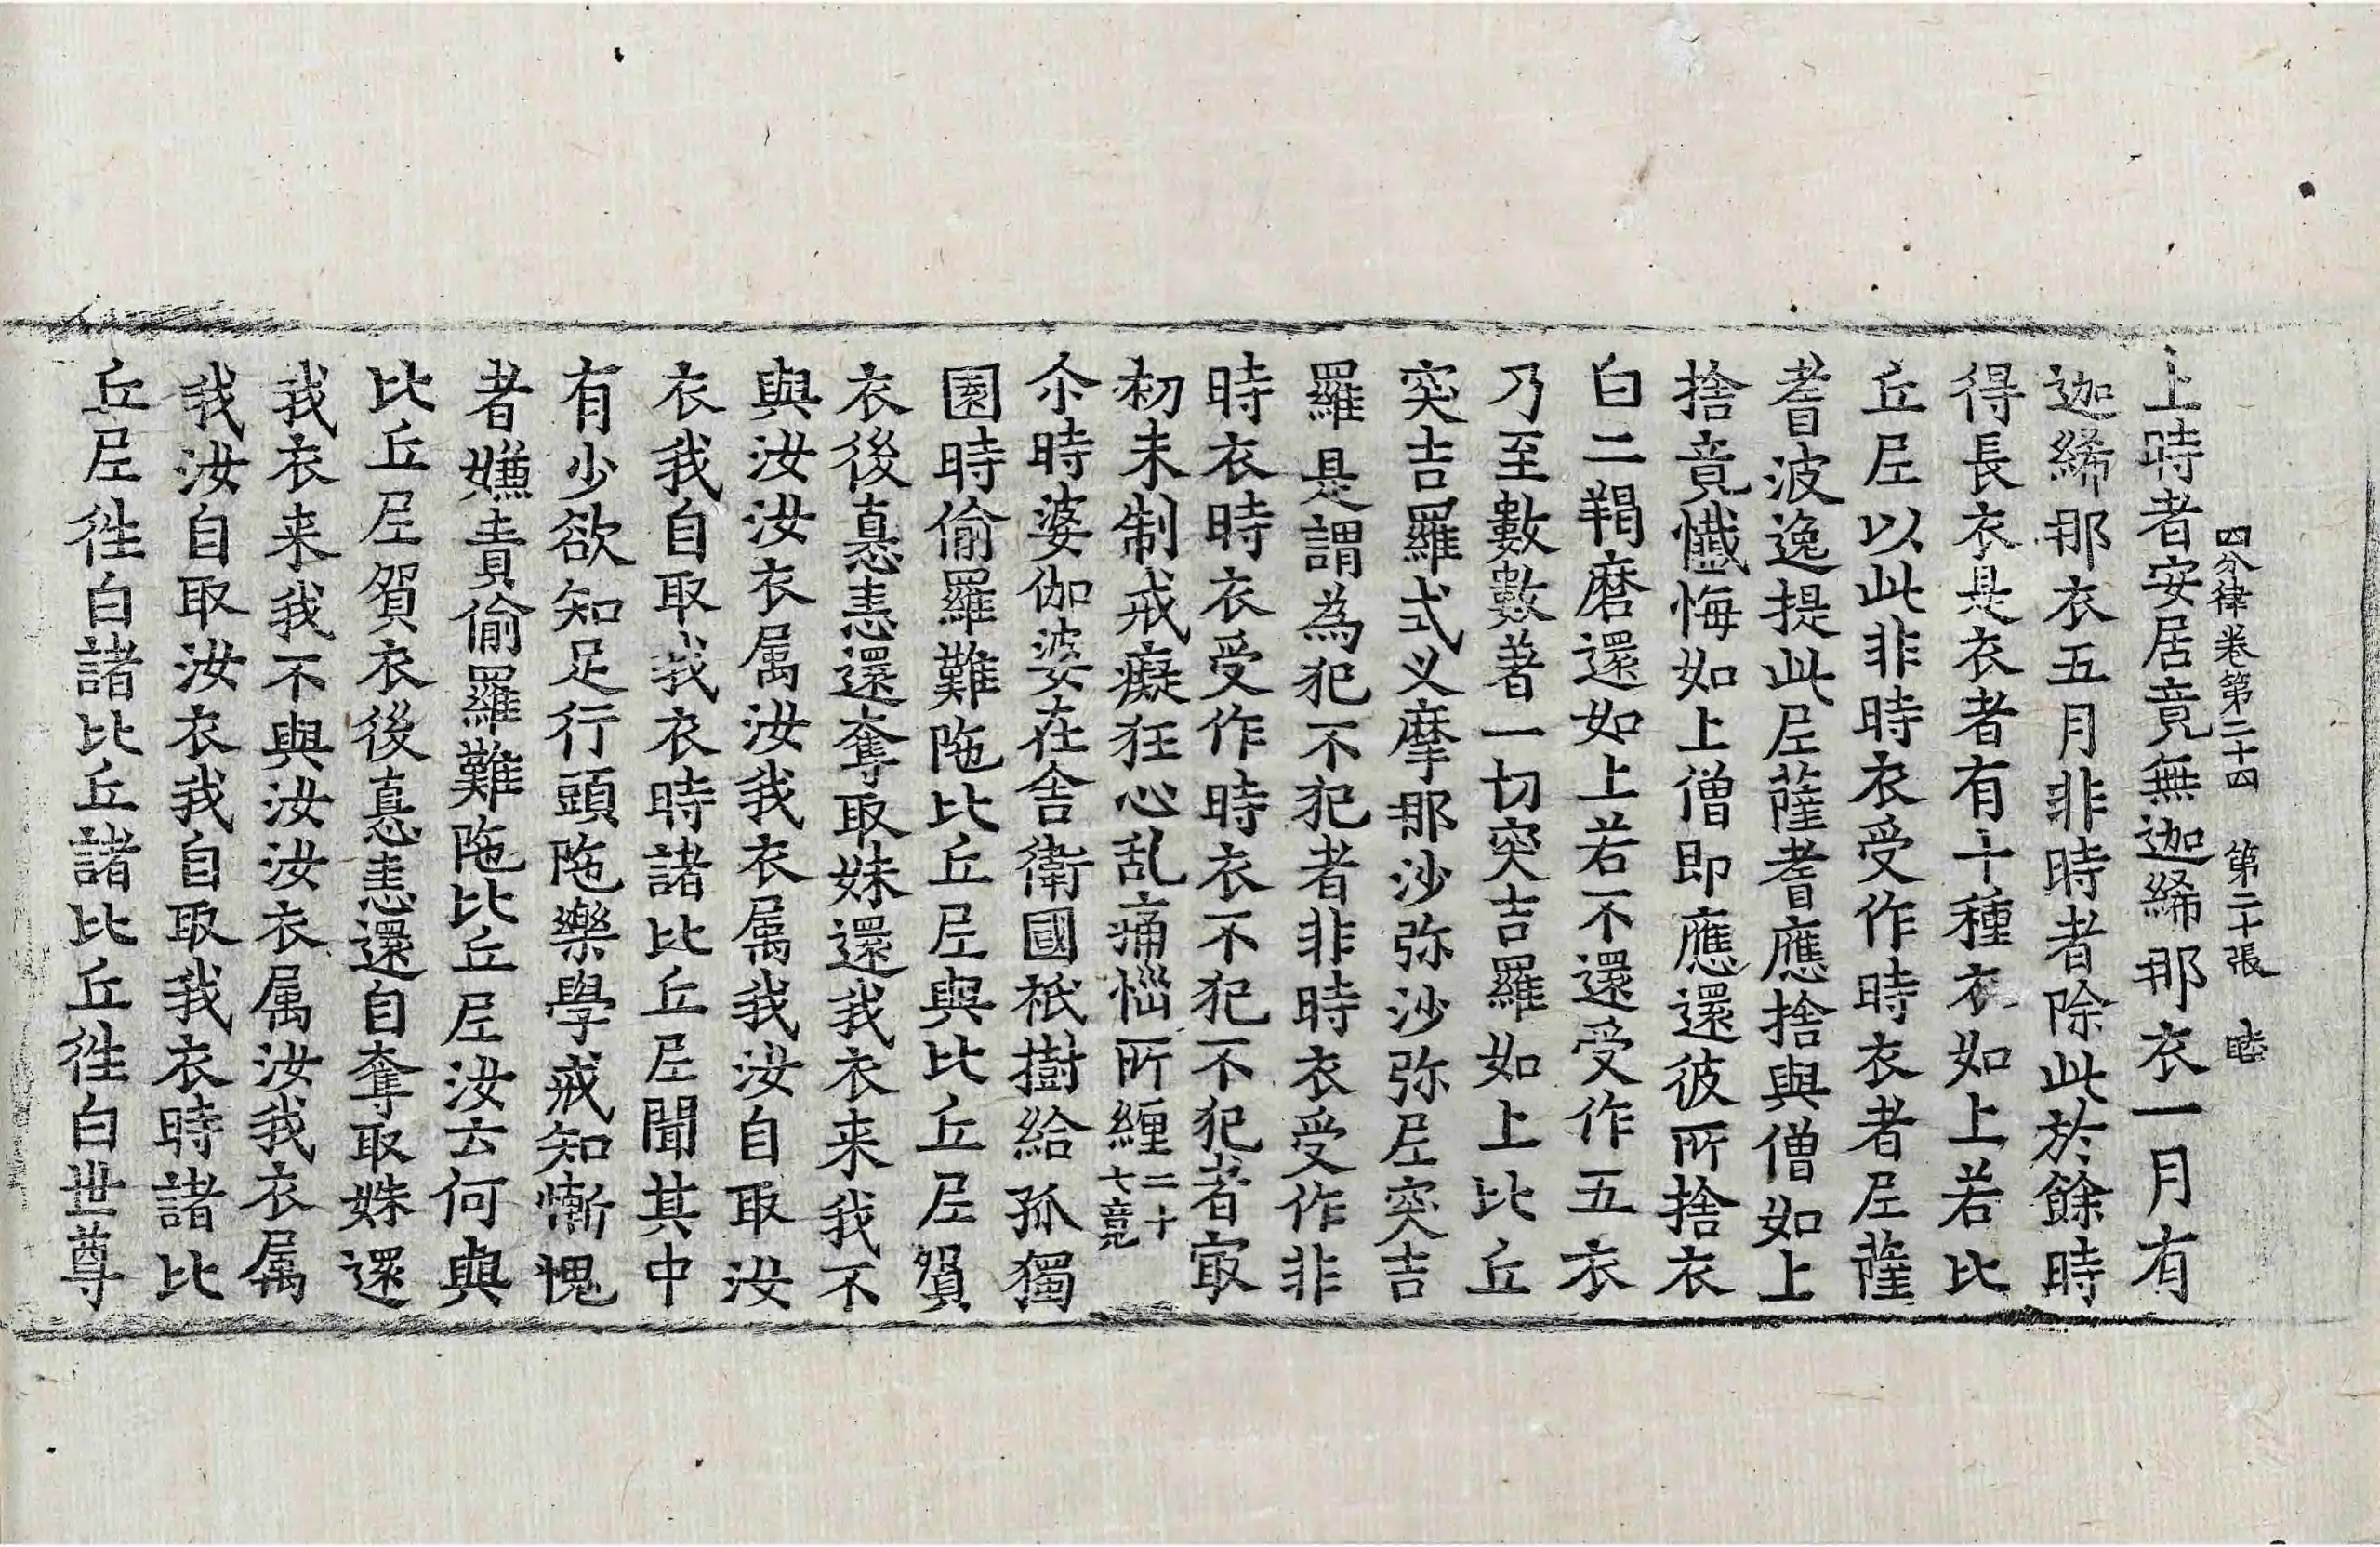 四分律卷第二十四　第二十張　睦
上時者安居竟無迦絺那衣一月有
迦絺那衣五月非時者除此於餘時
得長衣是衣者有十種衣如上若比
丘尼以此非時衣受作時衣者尼薩
耆波逸提此尼薩耆應捨與僧如上
捨竟懺悔如上僧即應還彼所捨衣
白二羯磨還如上若不還受作五衣
乃至數數著一切突吉羅如上比丘
突吉羅式叉摩那沙弥沙弥尼突吉
羅是謂為犯不犯者非時衣受作非
時衣時衣受作時衣不犯不犯者㝡
初未制戒癡狂心乱痛惱所纏二十
七竟
尒時婆伽婆在舍衛國祇樹給孤獨
園時偷羅難陁比丘尼與比丘尼貿
衣後恚還奪取妹還我衣来我不
與汝汝衣属汝我衣属我汝自取汝
衣我自取我衣時諸比丘尼聞其中
有少欲知足行頭陁樂學戒知慚愧
者嫌責偷羅難陁比丘尼汝云何與
比丘尼貿衣後恚還自奪取妹還
我衣来我不與汝汝衣属汝我衣属
我汝自取汝衣我自取我衣時諸比
丘尼徃白諸比丘諸比丘徃白世尊